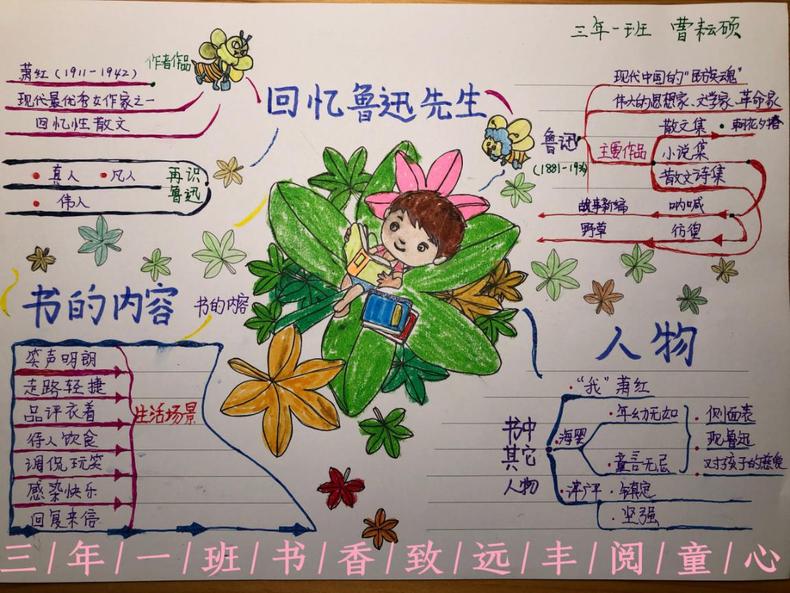 三年一班 曹耘硕
作者作品
萧红（1911-1942）
现代最优秀女作家之一
回忆性散文
回忆鲁迅先生
再识
鲁迅
真人 凡人
伟人
鲁迅
现代中国的"民族魂"
伟大的思想家、文学家、革命家
主要作品
散文集 朝花夕拾
小说集
散文诗集
故事新编 呐喊
野草 彷徨
书的内容
书的内容
笑声明朗
走路轻捷
品评衣着
待人饮食
调侃玩笑
感染快乐
回复来信
生活场景
人物
书中
其它
人物
"我"萧红
海婴
年幼无知
童言无忌
侧面表
现鲁迅
对孩子的慈爱
镇定
坚强
三/年/一/班/书/香/致/远/丰/阅/童/心